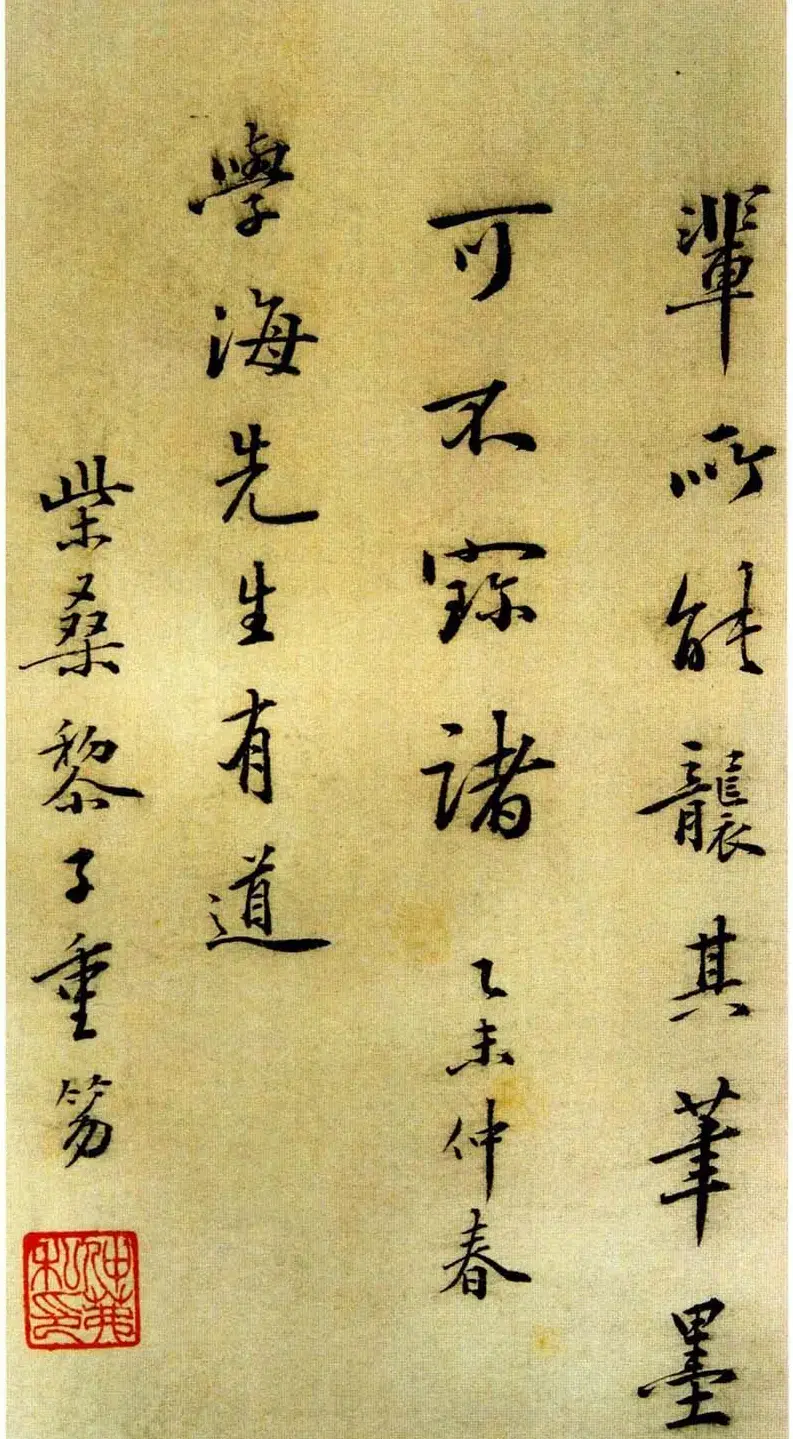 輩所能襲其筆墨
可不寶諸 乙未仲春
學海先生有道
柴桑黎子重笏